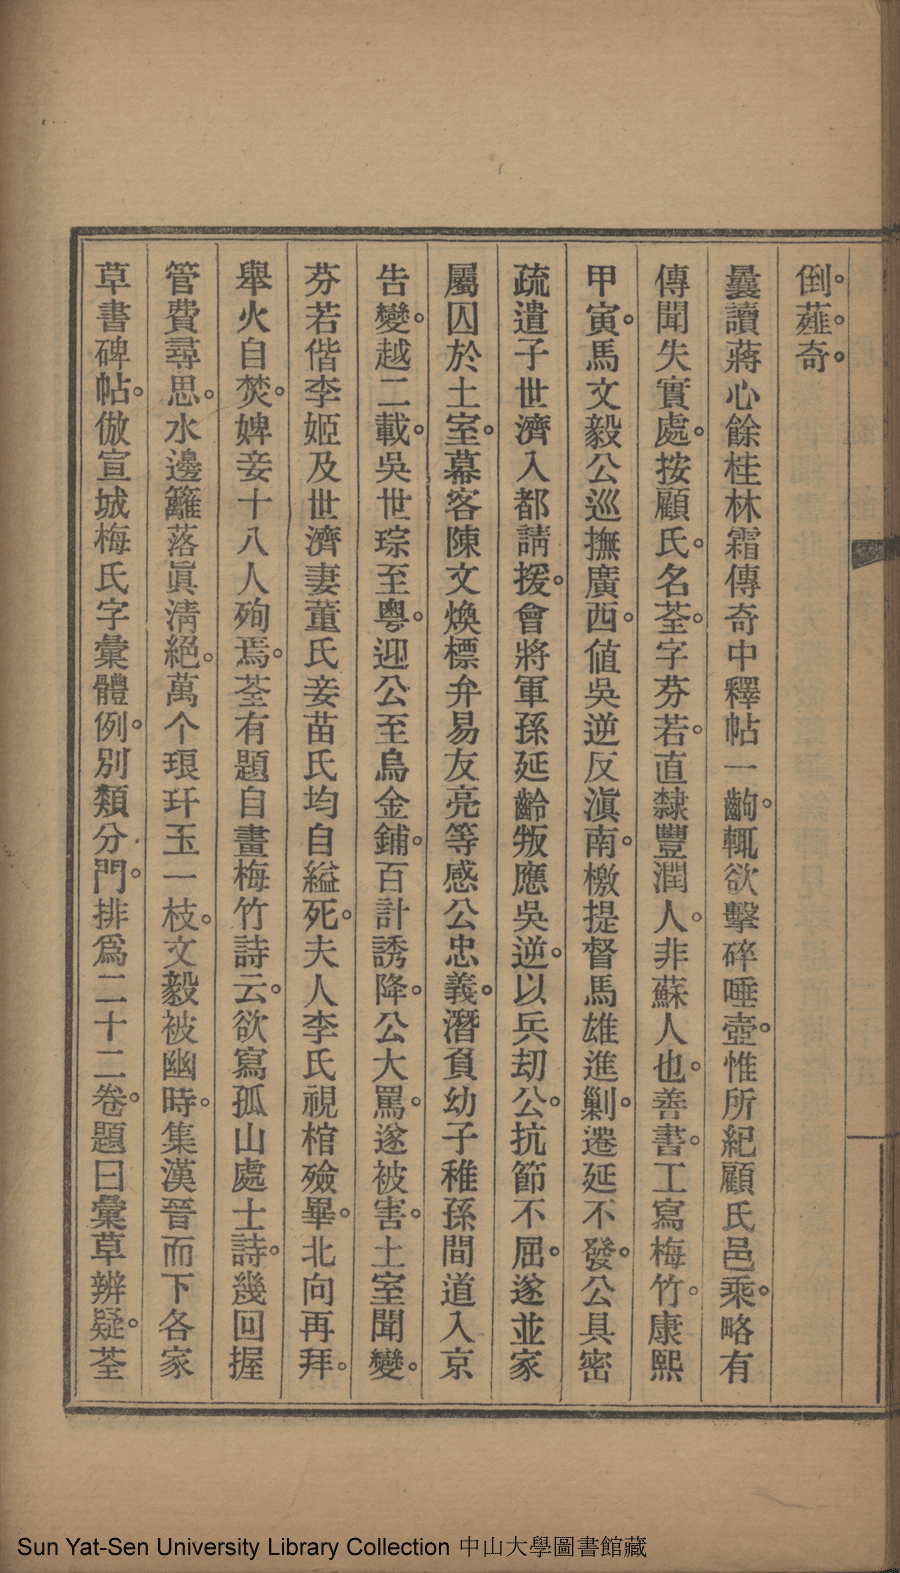 倒。薤。奇。
曩讀蔣心餘桂林霜傳奇中釋帖一齣。輒欲擊碎唾壺。惟所紀顧氏邑乘。略有
傳聞失實處。按顧氏。名荃。字芬若。直隸豐潤人。非蘇人也。善書。工寫梅竹。康熙
甲寅。馬文毅公巡撫廣西。値吳逆反滇南。檄提督馬雄進剿。遷延不發。公具密
疏遣子世濟入都請援。會將軍孫延齡叛應吳逆。以兵刧公。抗節不屈。遂並家
屬囚於土室。幕客陳文煥標弁易友亮等感公忠義。潛負幼子稚孫間道入京
告變。越二載。吳世琮至粵。迎公至烏金鋪。百計誘降。公大罵。遂被害。土室聞變。
芬若偕李姬及世濟妻董氏妾苗氏均自縊死。夫人李氏視棺殮畢。北向再拜。
舉火自焚。婢妾十八人殉焉。荃有題自畫梅竹詩云。欲寫孤山處士詩。幾回握
管費尋思。水邊籬落眞淸絕。萬个琅玕玉一枝。文毅被幽時。集漢晉而下各家
草書碑帖。倣宣城梅氏字彙體例。別類分門。排爲二十二卷。題曰彙草辨疑。荃
Sun Yat-Sen University Library Collection 中山大學圖書館藏